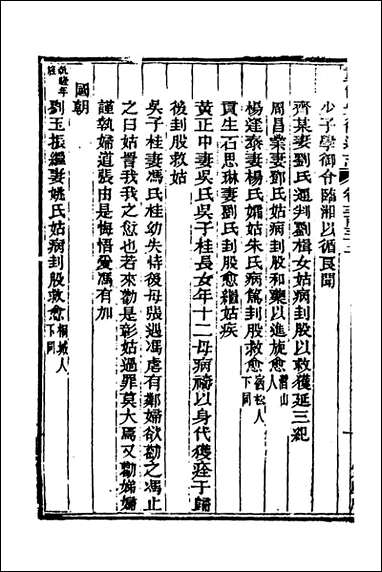 少子學御令臨湘以循良聞
齊某妻劉氏通判劉楫女姑病刲股以救獲延三紀
周昌業妻鄧氏姑病刲股和藥以進旋愈潛山人
楊逢泰妻楊氏孀姑朱氏病篤刲股救愈宿松人下同
貢生石思琳妻劉氏刲股愈繼姑疾
黃正中妻吳氏吳子桂長女年十二母病禱以身代獲痊于歸
後刲股救姑
吳子桂妻馮氏桂幼失恃後母張遇馮虐有鄰婦欲勸之馮止
之曰姑詈我我之愆也若來勸是彰姑過罪莫大焉又勸娣婦
謹執婦道張由是悔悟愛馮有加
國朝
劉玉振繼妻姚氏姑病刲股救愈桐城人下同